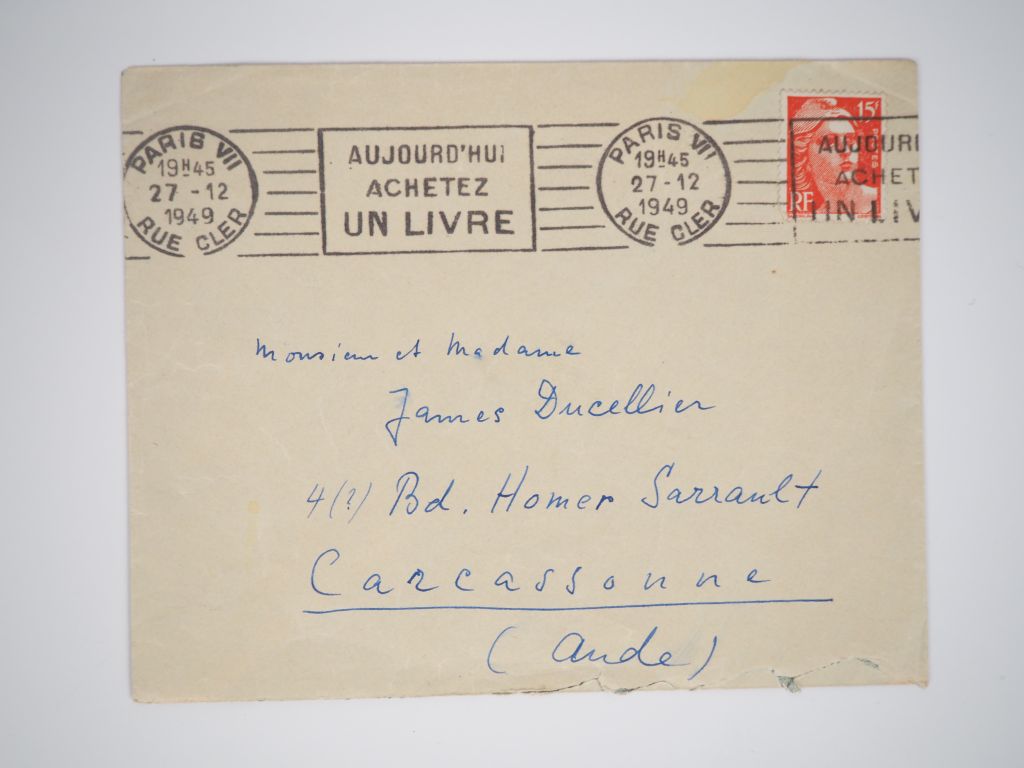 PARIS VII
19H45
27-12
1949
RUE CLER
AUJOURD'HUI
ACHETEZ
UN LIVRE
PARIS VII
19H45
27-12
1949
RUE CLER
15F
POSTES
RF
AUJOURD
ACHET
UN LIV
Monsieur et Madame
James Ducellier
4(?) Bd. Homer Sarrault
Carcassonne
(Aude)